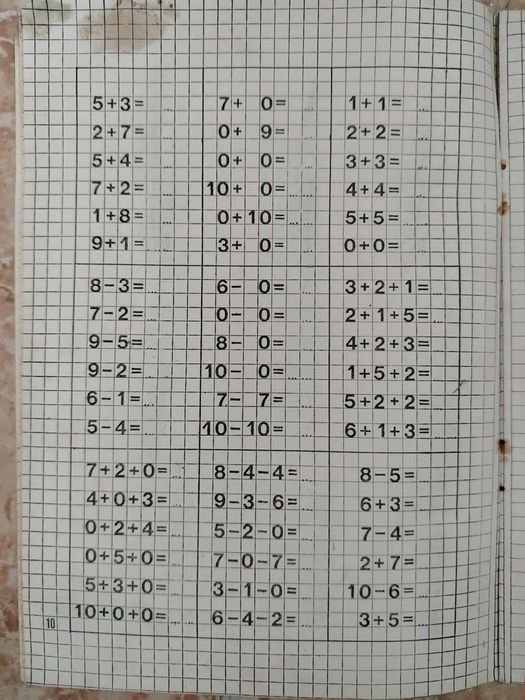 5+3=... 7+ 0=... 1+1=...
2+7=... 0+ 9=... 2+2=...
5+4=... 0+ 0=... 3+3=...
7+2=... 10+ 0=... 4+4=...
1+8=... 0+10=... 5+5=...
9+1=... 3+ 0=... 0+0=...
8-3=... 6- 0=... 3+2+1=...
7-2=... 0- 0=... 2+1+5=...
9-5=... 8- 0=... 4+2+3=...
9-2=... 10- 0=... 1+5+2=...
6-1=... 7- 7=... 5+2+2=...
5-4=... 10-10=... 6+1+3=...
7+2+0=... 8-4-4=... 8-5=...
4+0+3=... 9-3-6=... 6+3=...
0+2+4=... 5-2-0=... 7-4=...
0+5+0=... 7-0-7=... 2+7=...
5+3+0=... 3-1-0=... 10-6=...
10+0+0=... 6-4-2=... 3+5=...
10